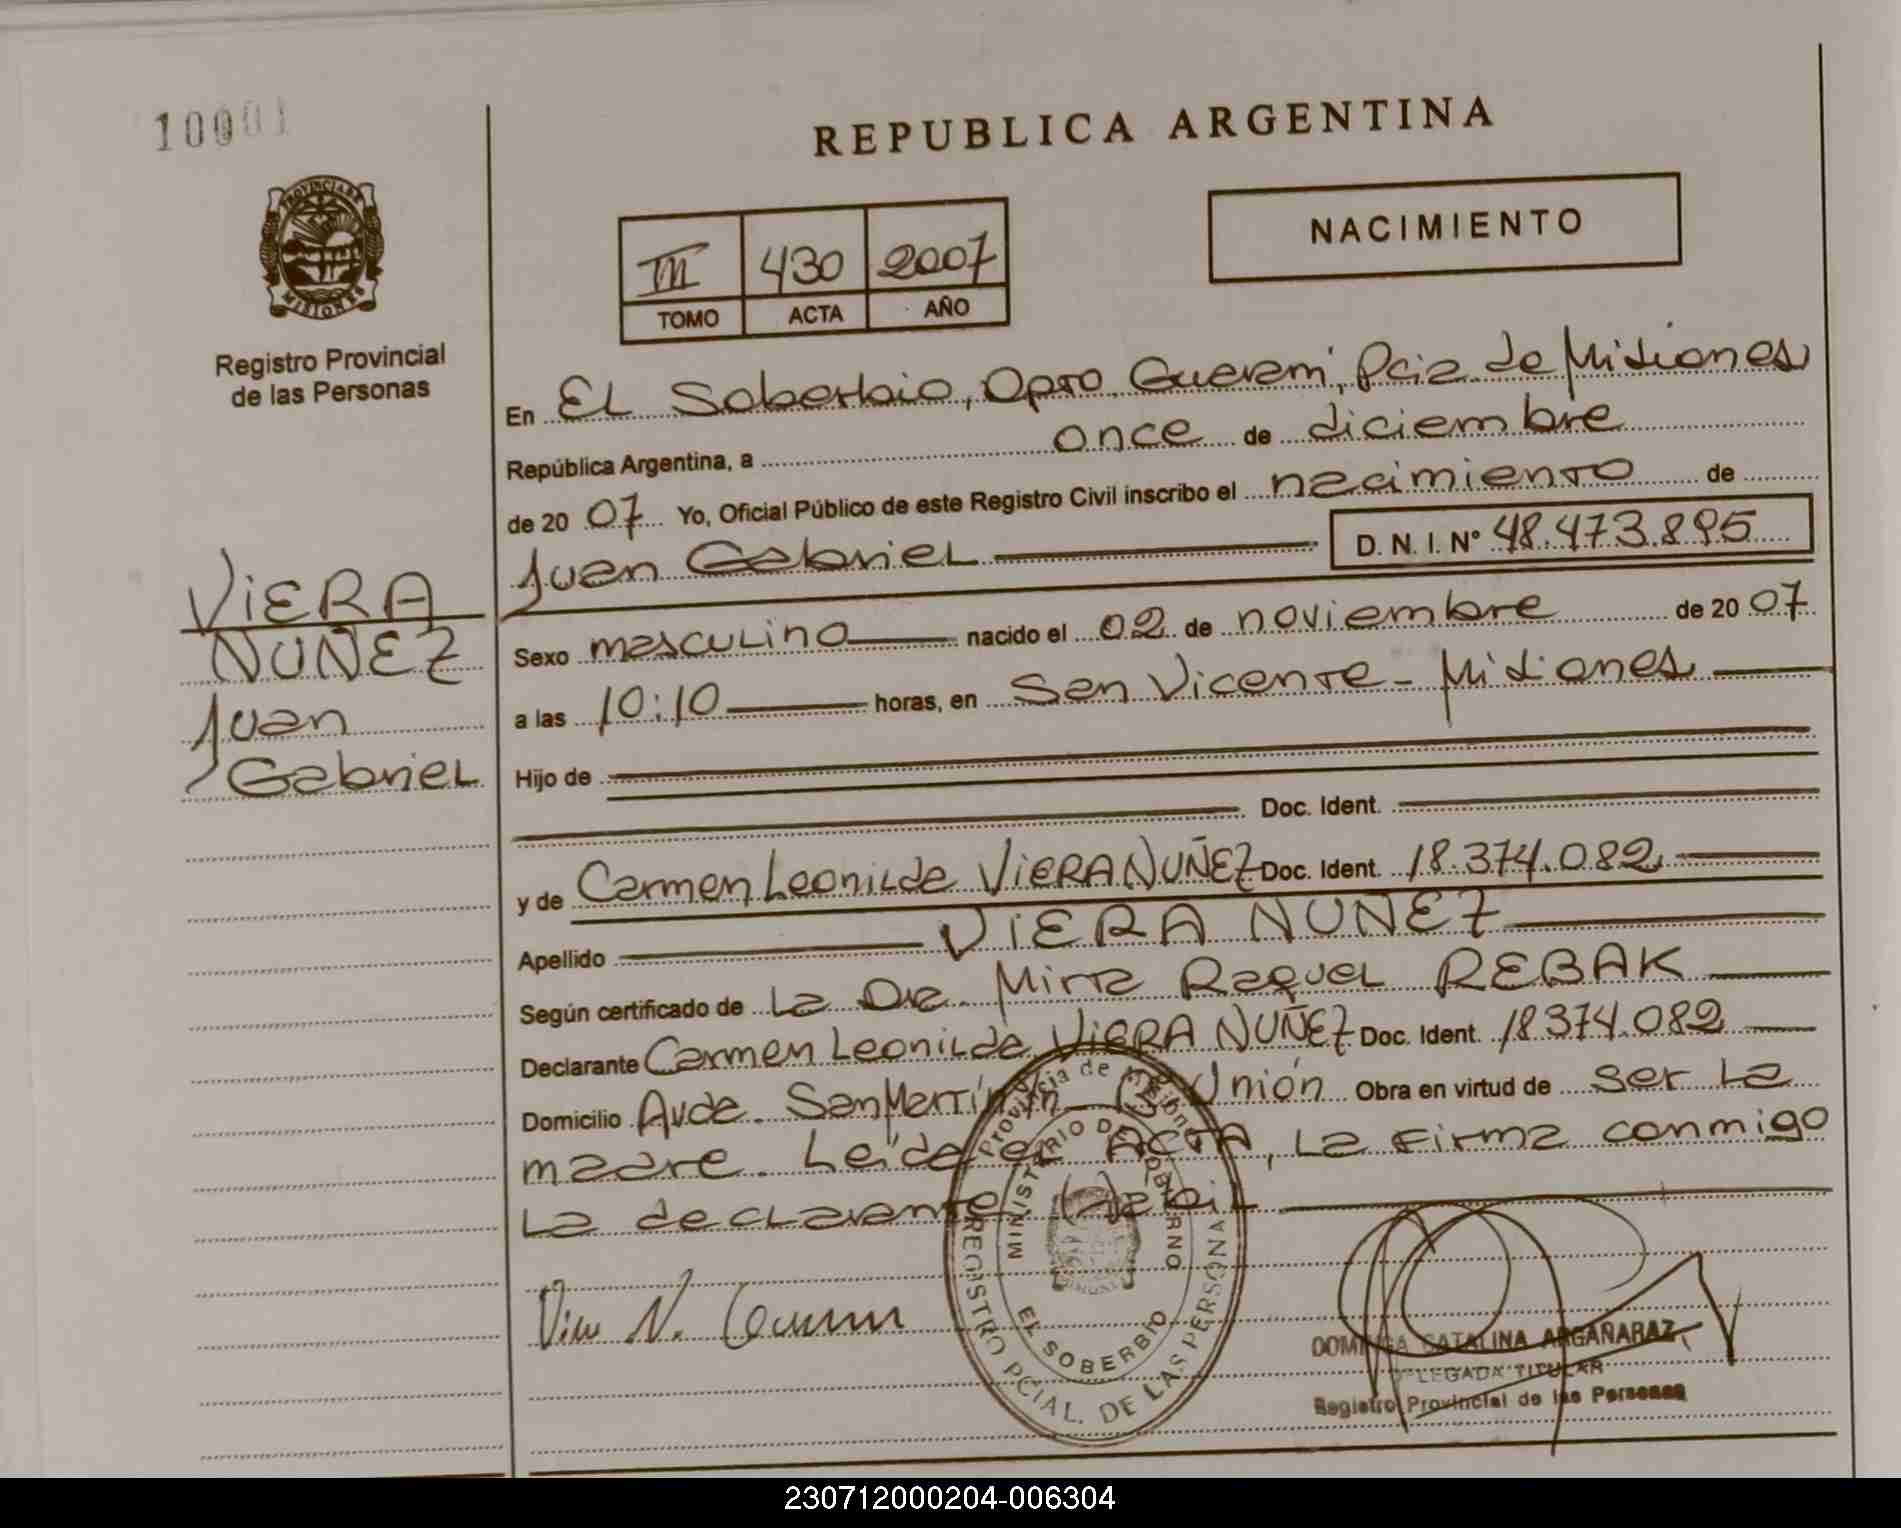 10001
REPUBLICA ARGENTINA
PROVINCIA DE
MISIONES
Registro Provincial
de las Personas
III 430 2007
TOMO ACTA AÑO
NACIMIENTO
En EL Soberbio, Dpto. Guarani, Pcia de Misiones
República Argentina, a once de diciembre
de 2007 Yo, Oficial Público de este Registro Civil inscribo el nacimiento de
Juan Gabriel D. N. I. N° 48.473.895
VIERA
NUÑEZ
Juan
Gabriel
Sexo masculino nacido el 02 de noviembre de 2007
a las 10:10 horas, en San Vicente - Misiones
Hijo de
Doc. Ident.
y de Carmen Leonilda VIERA NUÑEZ Doc. Ident. 18.374.082
Apellido VIERA NUÑEZ
Según certificado de La Dra. Mirta Raquel REBAK
Declarante Carmen Leonilda VIERA NUÑEZ Doc. Ident. 18.374.082
Domicilio Avda. San Martín Unión Obra en virtud de ser La
madre. Leída el ACTA, La firma conmigo
La declarante
Provincia de Misiones
MINISTERIO DE GOBIERNO
EL SOBERBIO
REGISTRO PCIAL. DE LAS PERSONAS
DOMINGA CATALINA ARGAÑARAZ
DELEGADA TITULAR
Registro Provincial de las Personas
230712000204-006304